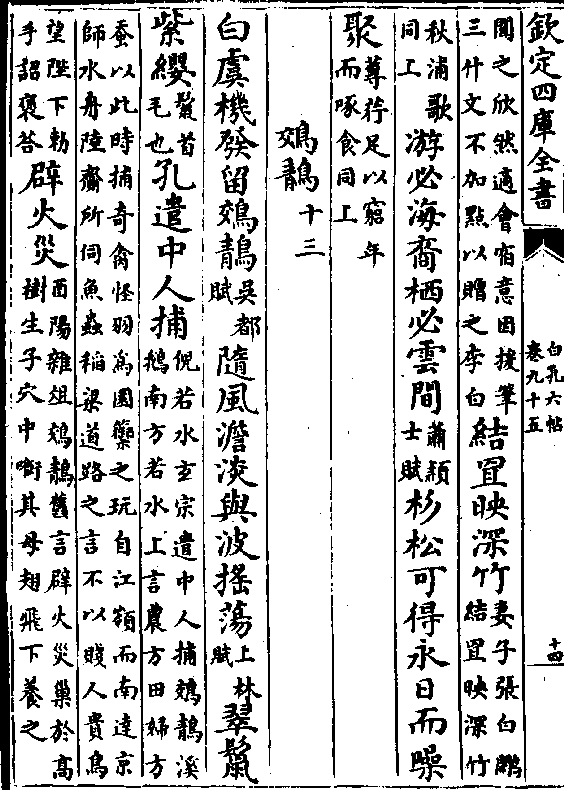 欽定四庫全書
白孔六帖
卷九十五
十四
聞之欣然適會宿意因援筆
三什文不加點以贈之李白
結罝映深竹
妻子張白鷴
結罝映深竹
秋浦歌
同上
游必海裔栖必雲間
蕭穎
士賦
杉松可得永日而噪
聚
蓴荇足以窮年
而啄食同上
鵁鶄十三
白虞機發留鵁鶄
吳都
賦
隨風澹淡與波搖蕩
上林
賦
翠鬣
紫纓
鬣首
毛也
孔遣中人捕
倪若水玄宗遣中人捕鵁鶄溪
鵣南方若水上言農方田婦方
蚕以此時捕奇禽怪羽為園籞之玩自江嶺而南達京
師水舟陸齎所伺魚蟲稻粱道路之言不以賤人貴鳥
望陛下勑
手詔褒荅
辟火災
酉陽雜俎鵁鶄舊言辟火災巢於高
樹生子穴中㘅其母翅飛下養之